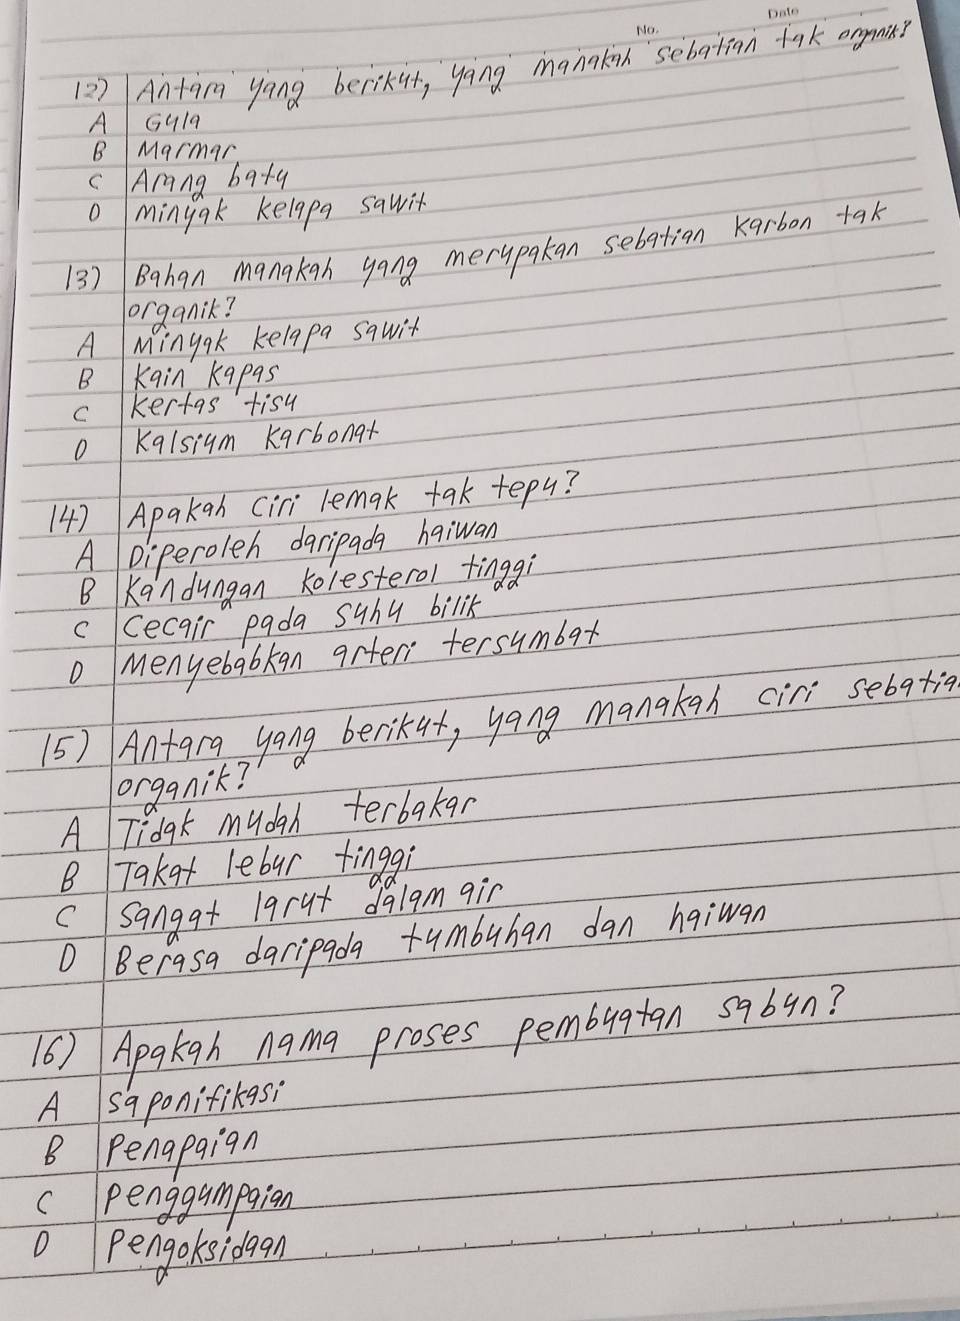 No.
Date
12) Antara yang berikut, yang manakah sebatian tak organik?
A Gula
B Marmar
C Arang batu
D minyak kelapa sawit
13) Bahan manakah yang merupakan sebatian karbon tak
organik?
A Minyak kelapa sawit
B Kain kapas
C kertas tisu
D Kalsium karbonat
14) Apakah ciri lemak tak tepu?
A Diperoleh daripada haiwan
B Kandungan kolesterol tinggi
C Cecair pada suhu bilik
D Menyebabkan arteri tersumbat
15) Antara yang berikut, yang manakah ciri sebatia
organik?
A Tidak mudah terbakar
B Takat lebur tinggi
C Sangat larut dalam air
D Berasa daripada tumbuhan dan haiwan
16) Apakah nama proses pembuatan sabun?
A saponifikasi
B Penapaian
C Penggumpaian
D Pengoksidaan